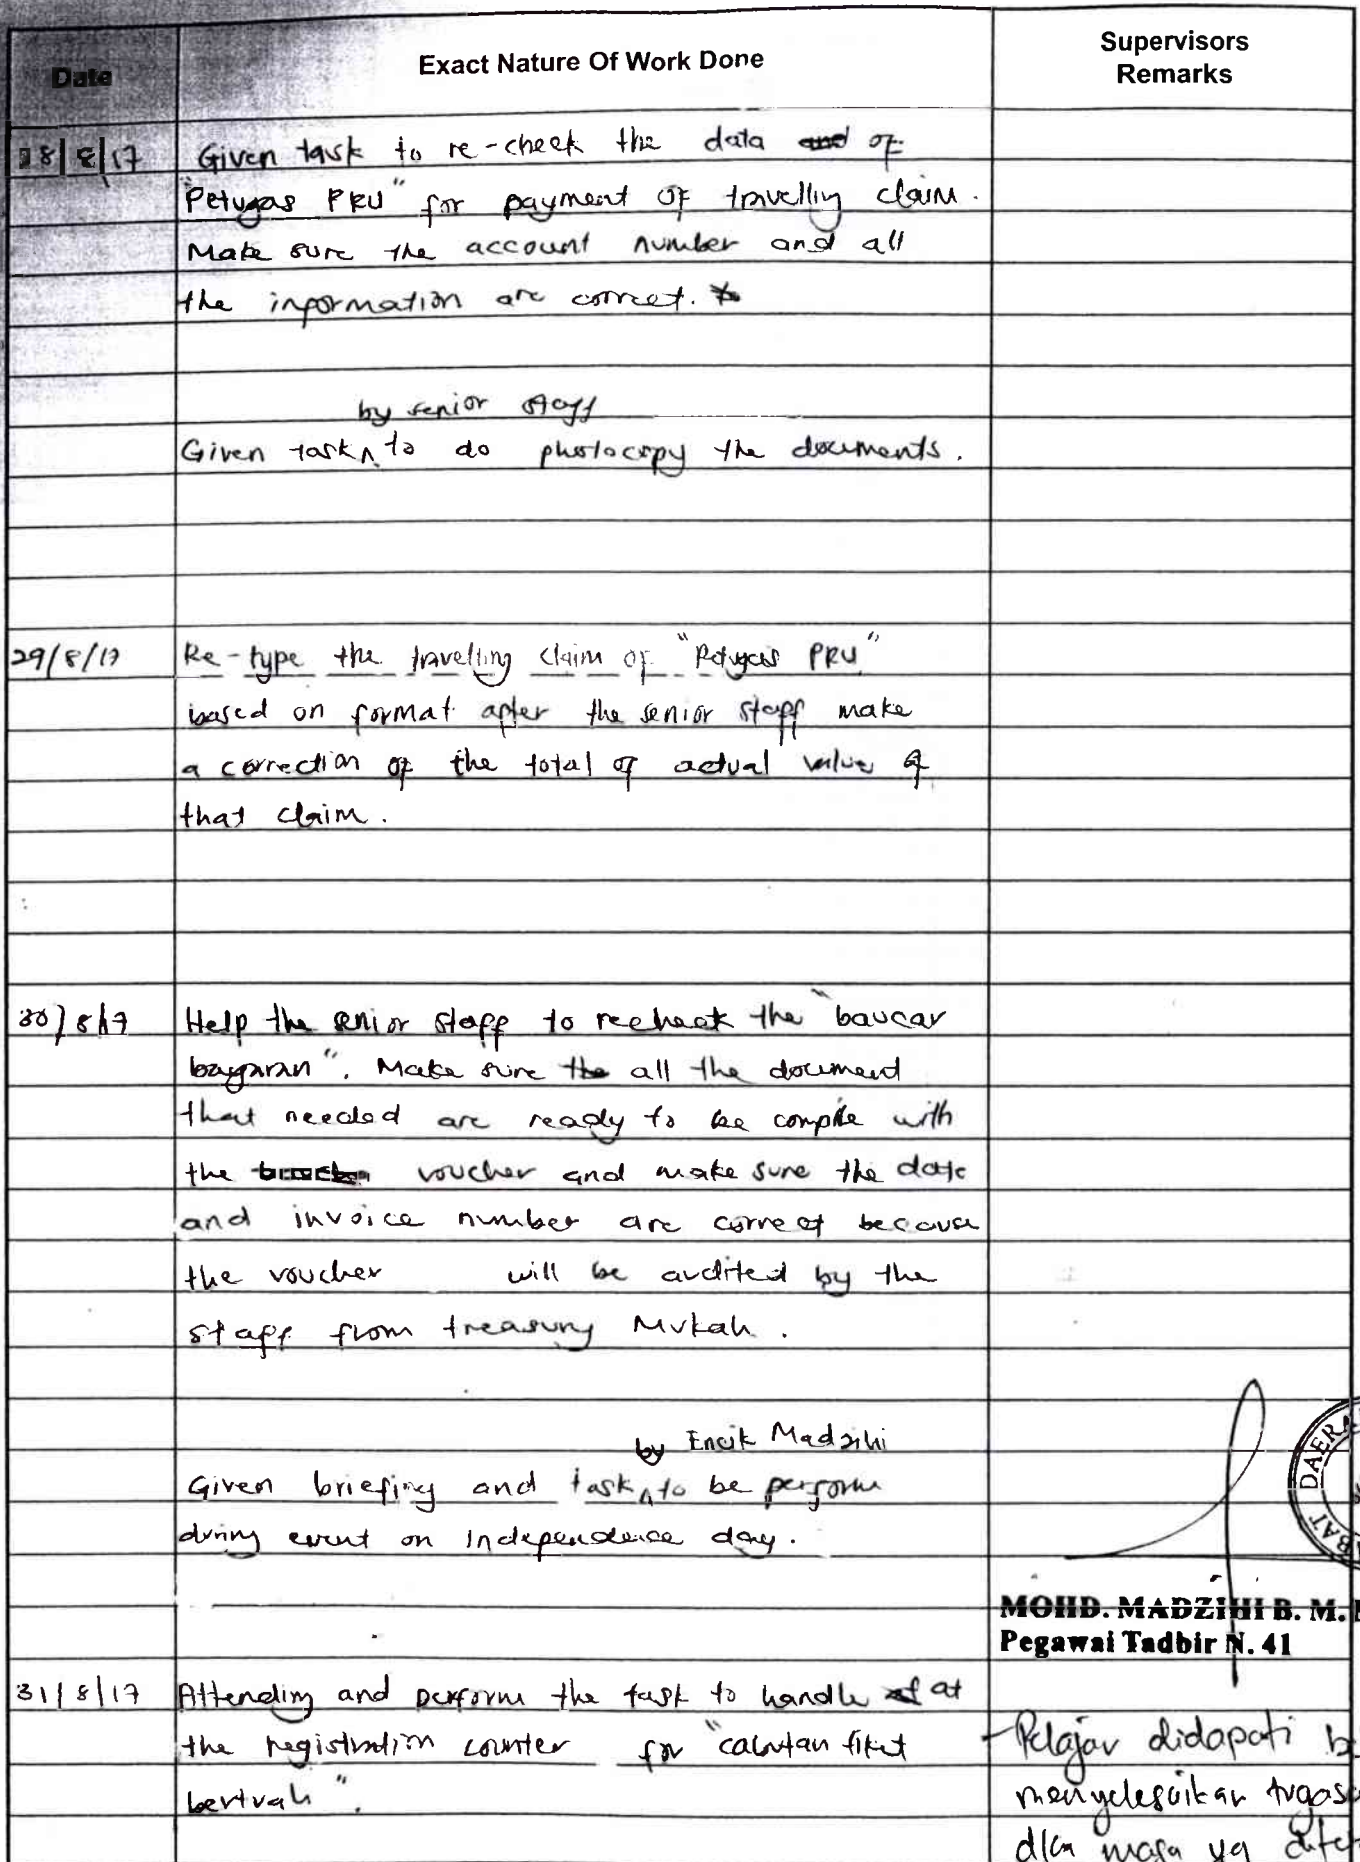 Date
Exact Nature Of Work Done
Supervisors
Remarks
28/8/17 Given task to re-check the data of
"Petugas PRU" for payment of travelling claim.
Make sure the account number and all
the information are correct.
by senior staff
Given task ^ to do photocopy the documents.
29/8/17 Re-type the travelling claim of "Petugas PRU"
based on format after the senior staff make
a correction of the total of actual value of
that claim.
30/8/17 Help the senior staff to recheck the "baucar
bayaran". Make sure all the document
that needed are ready to be compile with
the voucher and make sure the date
and invoice number are correct because
the voucher will be audited by the
staff from treasury Mukah.
by Encik Madzihi
Given briefing and task ^ to be perform
during event on independence day.
DAERA
BAT
MOHD. MADZIHI B. M.
Pegawai Tadbir N. 41
31/8/17 Attending and perform the task to handle at
the registration counter for "cabutan tiket
bertuah".
- Pelajar didapati b
menyelesaikan tugas
dlm masa yg